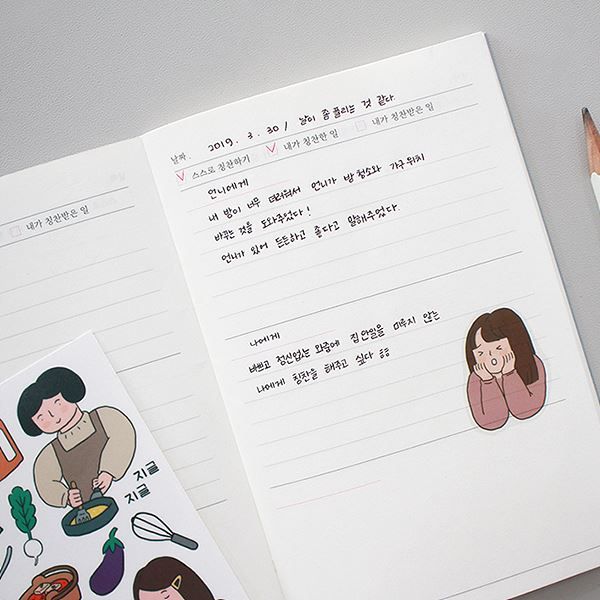 날짜. 2019. 3. 30 / 날이 좀 풀리는 것 같다.
스스로 칭찬하기 내가 칭찬한 일 내가 칭찬받은 일
언니에게
내 방이 너무 더러워서 언니가 방 청소와 가구 위치
바꾸는 것을 도와주었다!
언니가 있어 든든하고 좋다고 말해주었다.
나에게
바쁘고 정신없는 와중에 집안일을 미루지 않는
나에게 칭찬을 해주고 싶다 ㅎㅎ
내가 칭찬받은 일
지글
지글